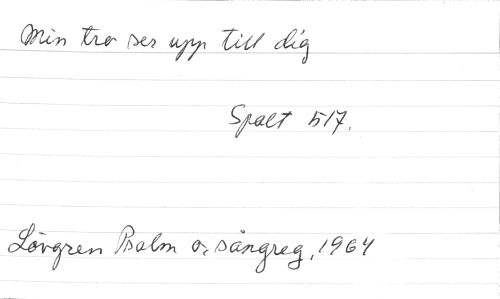 Min tro ser upp till dig
Spalt 517.
Lövgren Psalm o. sångreg., 1964